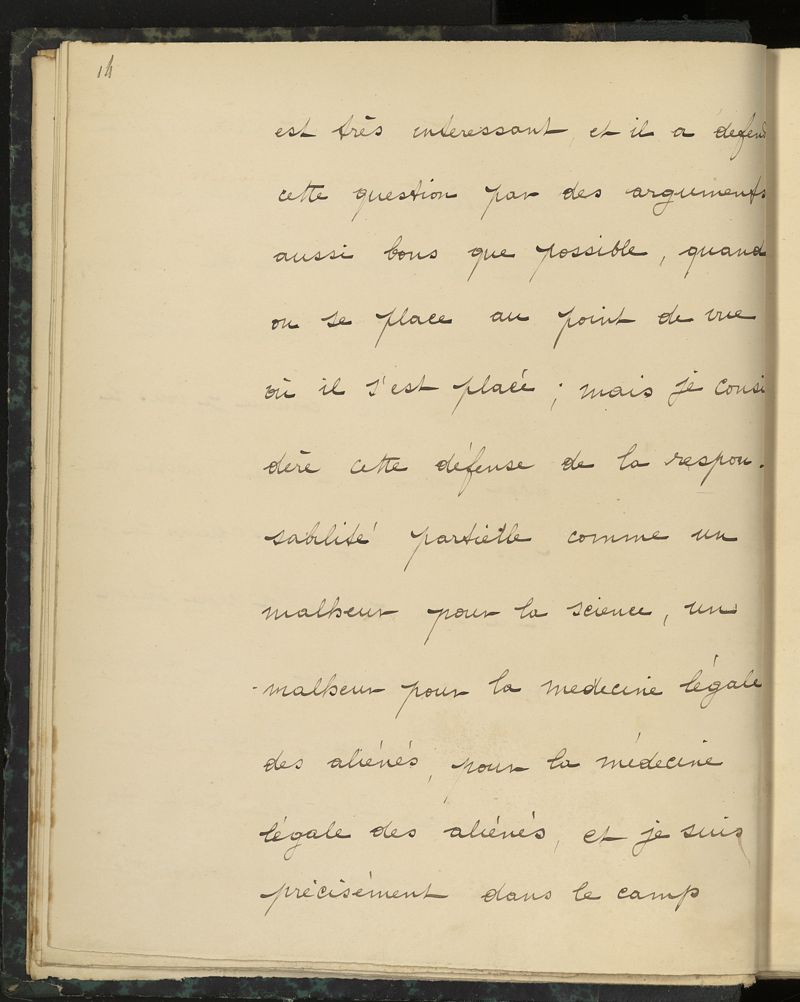 14
est très interessant, et il a défend
cette question par des arguments
aussi bons que possible, quand
on se place au point de vue
où il s'est placé ; mais je consi
dère cette défense de la respon-
sabilité partielle comme un
malheur pour la science, un
malheur pour la medecine légale
des aliénés, pour la médecine
légale des aliénés, et je suis
précisément dans le camp